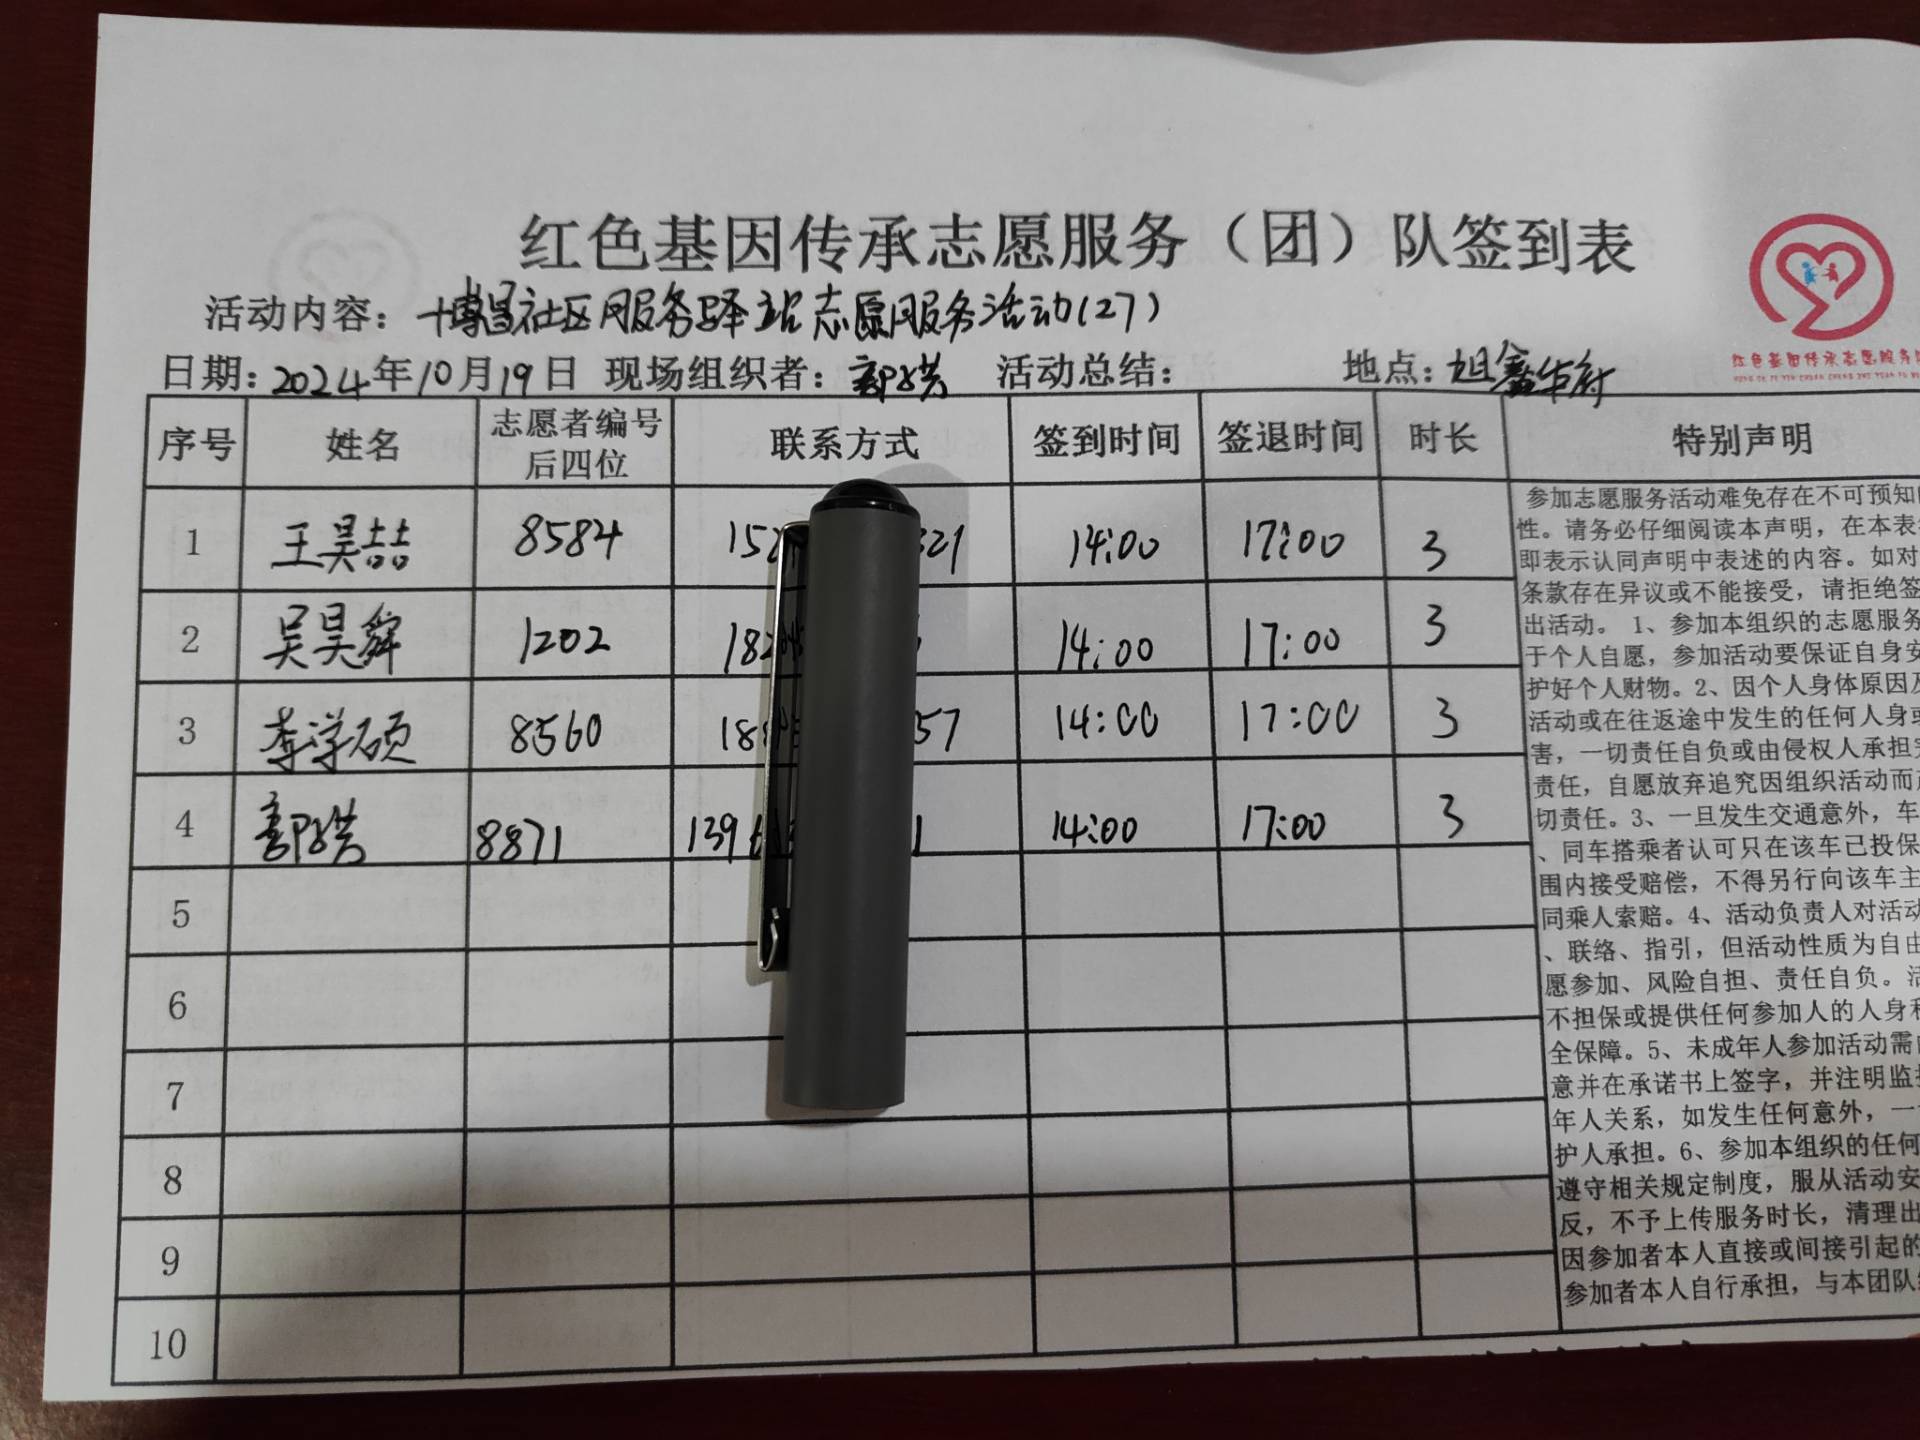 红色基因传承志愿服务（团）队签到表
活动内容：博昌社区服务驿站志愿服务活动(27)
日期：2024年10月19日 现场组织者：郭洪 活动总结： 地点：旭鑫华府
红色基因传承志愿服务
序号 姓名 志愿者编号后四位 联系方式 签到时间 签退时间 时长 特别声明
1 王昊喆 8584 152 321 14:00 17:00 3
2 吴昊舜 1202 182 14:00 17:00 3
3 李洋硕 8560 18 57 14:00 17:00 3
4 郭洪 8871 139 1 14:00 17:00 3
5
6
7
8
9
10
参加志愿服务活动难免存在不可预知
性。请务必仔细阅读本声明，在本表
即表示认同声明中表述的内容。如对
条款存在异议或不能接受，请拒绝签
出活动。1、参加本组织的志愿服务
于个人自愿，参加活动要保证自身安
护好个人财物。2、因个人身体原因及
活动或在往返途中发生的任何人身或
害，一切责任自负或由侵权人承担
责任，自愿放弃追究因组织活动而
切责任。3、一旦发生交通意外，车
、同车搭乘者认可只在该车已投保
围内接受赔偿，不得另行向该车主
同乘人索赔。4、活动负责人对活动
、联络、指引，但活动性质为自由
愿参加、风险自担、责任自负。活
不担保或提供任何参加人的人身和
全保障。5、未成年人参加活动需
意并在承诺书上签字，并注明监
年人关系，如发生任何意外，一
护人承担。6、参加本组织的任何
遵守相关规定制度，服从活动安
反，不予上传服务时长，清理出
因参加者本人直接或间接引起的
参加者本人自行承担，与本团队